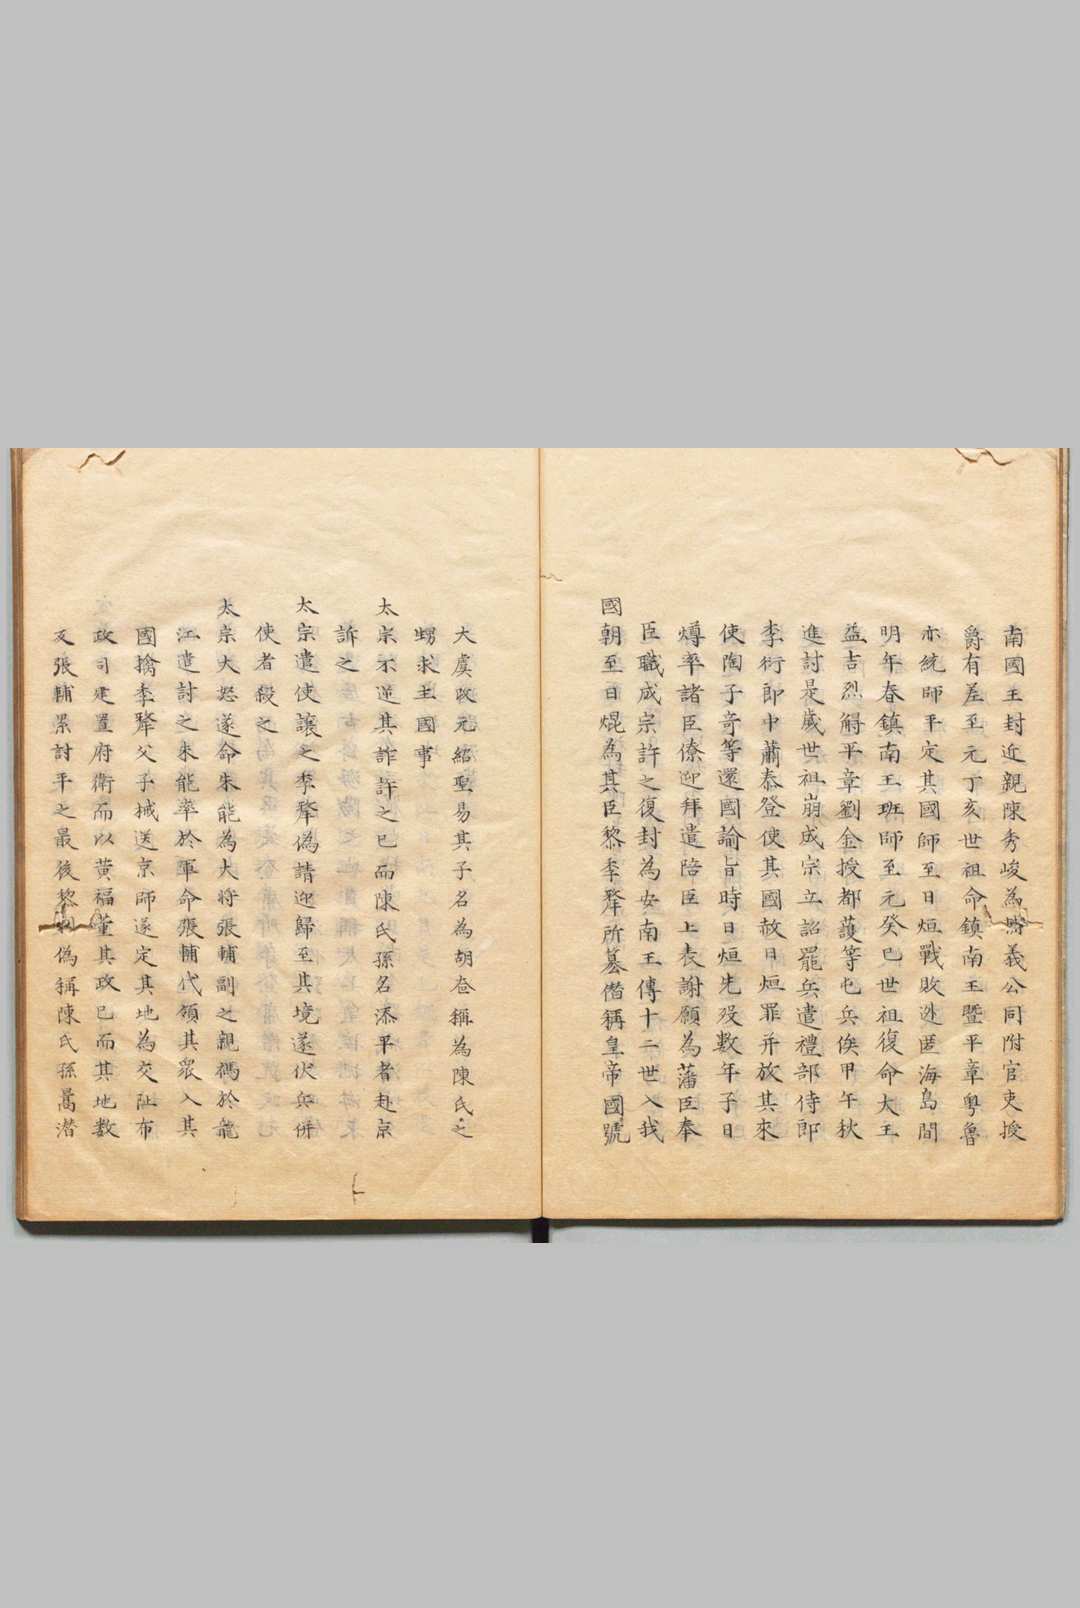 南國王封近親陳秀峻為義公同附官吏授
爵有差至元丁亥世祖命鎮南王暨平章粤魯
亦統師平定其國師至日烜戰敗逃匿海島間
明年春鎮南王班師至元癸巳世祖復命大王
益吉烈䚟平章劉金授都護等屯兵俟甲午秋
進討是歲世祖崩成宗立詔罷兵遣禮部侍郎
李衎郎中蕭泰登使其國赦日烜罪并放其來
使陶子奇等還國諭旨時日烜先殁數年子日
燇率諸臣僚迎拜遣陪臣上表謝願為藩臣奉
臣職成宗許之復封為安南王傳十二世入我
國朝至日焜為其臣黎季犛所篡僭稱皇帝國號
大虞改元紹聖易其子名為胡㡳稱為陳氏之
甥求主國事
太宗不逆其詐許之已而陳氏孫名添平者赴京
訴之
太宗遣使讓之季犛偽請迎歸至其境遂伏兵併
使者殺之
太宗大怒遂命朱能為大將張輔副之親禡於龍
江遣討之朱能卒於軍命張輔代領其眾入其
國擒季犛父子械送京師遂定其地為交阯布
政司建置府衛而以黄福董其政已而其地數
反張輔累討平之最後黎利偽稱陳氏孫暠潜